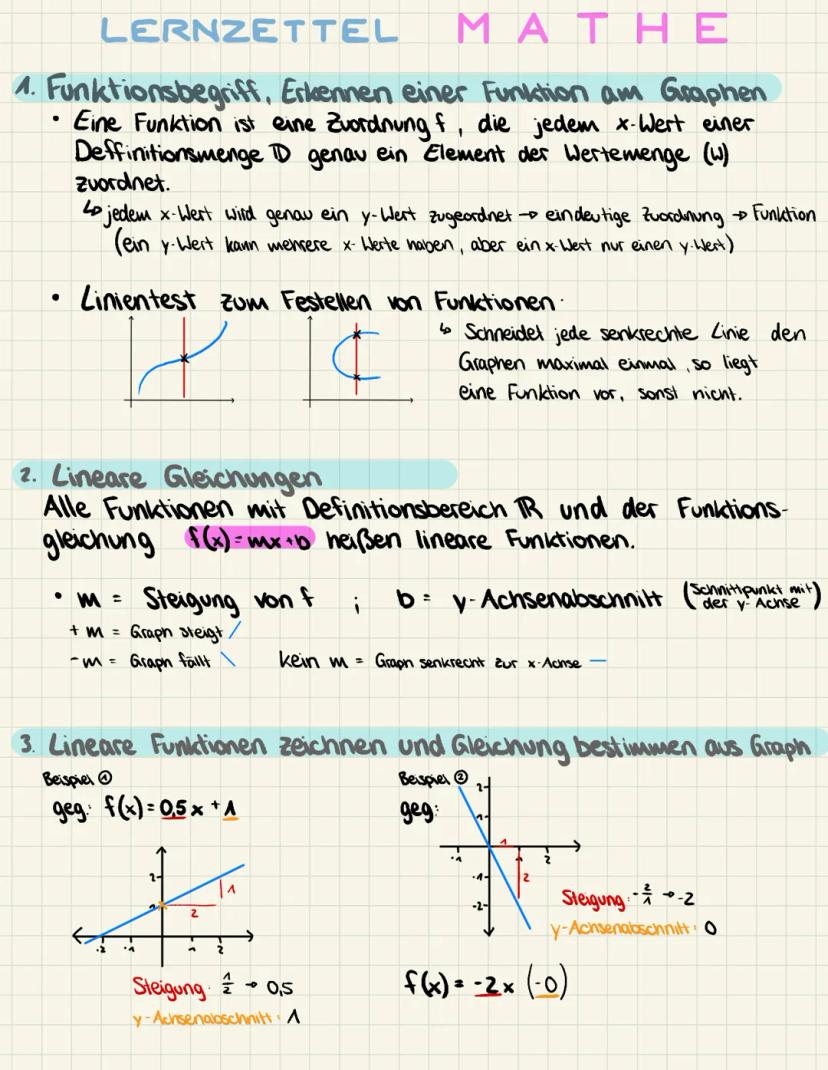 LERNZETTEL MATHE
1. Funktionsbegriff, Erkennen einer Funktion am Graphen
• Eine Funktion ist eine Zuordnung f, die jedem x-Wert einer
Deffinitionsmenge D genau ein Element der Wertemenge (W)
zuordnet.
↳ jedem x-Wert wird genau ein y-Wert zugeordnet → eindeutige Zuordnung → Funktion
(ein y-Wert kann mehrere x-Werte haben, aber ein x-Wert nur einen y-Wert)
• Linientest zum Festellen von Funktionen.
↳ Schneidet jede senkrechte Linie den
Graphen maximal einmal, so liegt
eine Funktion vor, sonst nicht.
2. Lineare Gleichungen
Alle Funktionen mit Definitionsbereich ℝ und der Funktions-
gleichung f(x)=mx+b heißen lineare Funktionen.
• m = Steigung von f ; b = y-Achsenabschnitt (Schnittpunkt mit
der y-Achse)
+ m = Graph steigt /
- m = Graph fällt \ kein m = Graph senkrecht zur x-Achse —
3. Lineare Funktionen zeichnen und Gleichung bestimmen aus Graph
Beispiel ①
geg: f(x) = 0,5x + 1
2
1
1
2
-2 -1 1 2
Steigung: 1/2 → 0,5
y-Achsenabschnitt: 1
Beispiel ②
geg:
2
1
1
-1 1 2
-1
2
-2
Steigung: -2/1 → -2
y-Achsenabschnitt: 0
f(x) = -2x (-0)